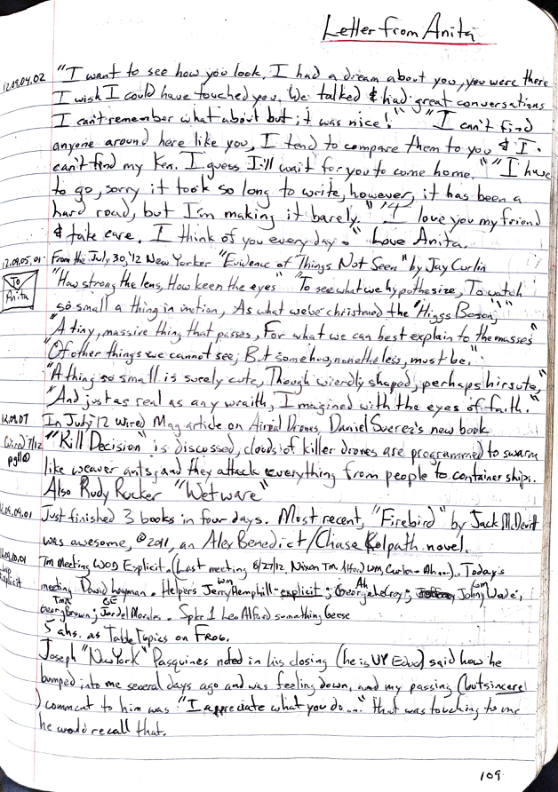 Letter from Anita
12.09.04.02 "I want to see how you look. I had a dream about you, you were there
I wish I could have touched you. We talked & had great conversations
I can't remember what about but it was nice!" "I can't find
anyone around here like you, I tend to compare them to you & I
can't find my Ken. I guess I'll wait for you to come home." "I have
to go, sorry it took so long to write, however, it has been a
hard road, but I'm making it barely." "I love you my friend
& take care. I think of you every day." Love Anita.
12.09.05.01 From the July, 30, '12 New Yorker "Evidence of Things Not Seen" by Jay Curlin
To Anita
"How strong the lens, How keen the eyes" To see what we hypothesize, To watch
so small a thing in motion, As what we've christened the "Higgs Boson,"
"A tiny, massive thing that passes, For what we can best explain to the masses"
"Of other things we cannot see; But somehow, nonetheless, must be."
"A thing so small is surely cute, Though wierdly shaped, perhaps hirsute,"
"And just as real as any wraith, Imagined with the eyes of faith."
In July '12 Wired Mag article on Aireal Drones, Daniel Suerez's new book
Wired 7/12
"Kill Decision" is discussed, clouds of killer drones are programmed to swarm
like weaver ants, and they attack everything from people to container ships.
Also Rudy Rucker "Wetware"
Just finished 3 books in four days. Most recent, "Firebird" by Jack McDevitt
was awesome, © 2011, an Alex Benedict/Chase Kolpath novel.
TM Meeting WOD Explicit. (Last meeting 8/27/12, Nixon Tm, Alford WM, Curlin - Ah...). Today's
meeting David Loyman. Helpers Jerry Hemphill - explicit; George Leroy; John Wade,
George Brown; Jordel Morales. Spkr 1 Leo Alford something Geese
5 ahs. as Table Topics on FROG.
Joseph "New York" Pasquines noted in his closing (he is VP Educ) said how he
bumped into me several days ago and was feeling down, and my passing (but sincere
) comment to him was "I appreciate what you do..." that was touching to me
he would recall that.
109